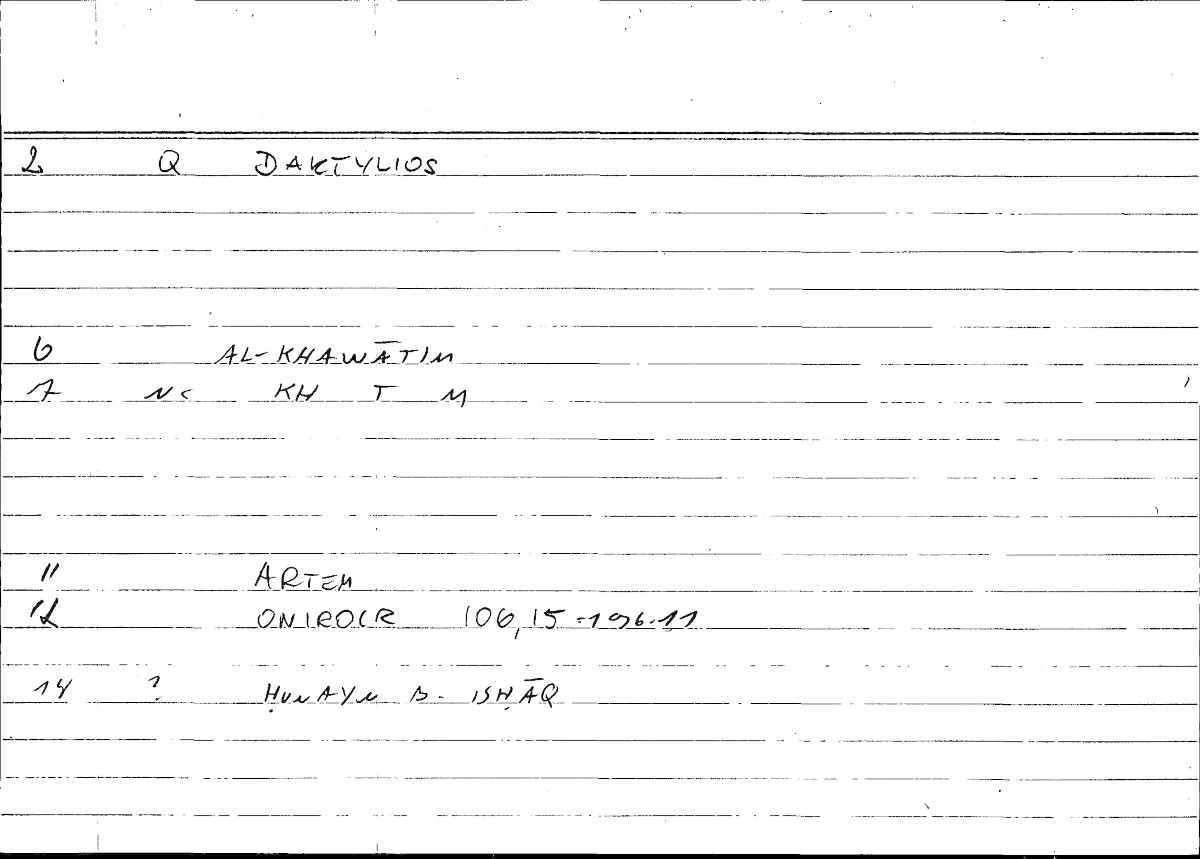 2 Q DAKTYLIOS
6 AL-KHAWĀTIM
7 N< KH T M
11 ARTEM
12 ONIROCR 106,15=196.11
14 ? ḤUNAYN B. ISḤĀQ